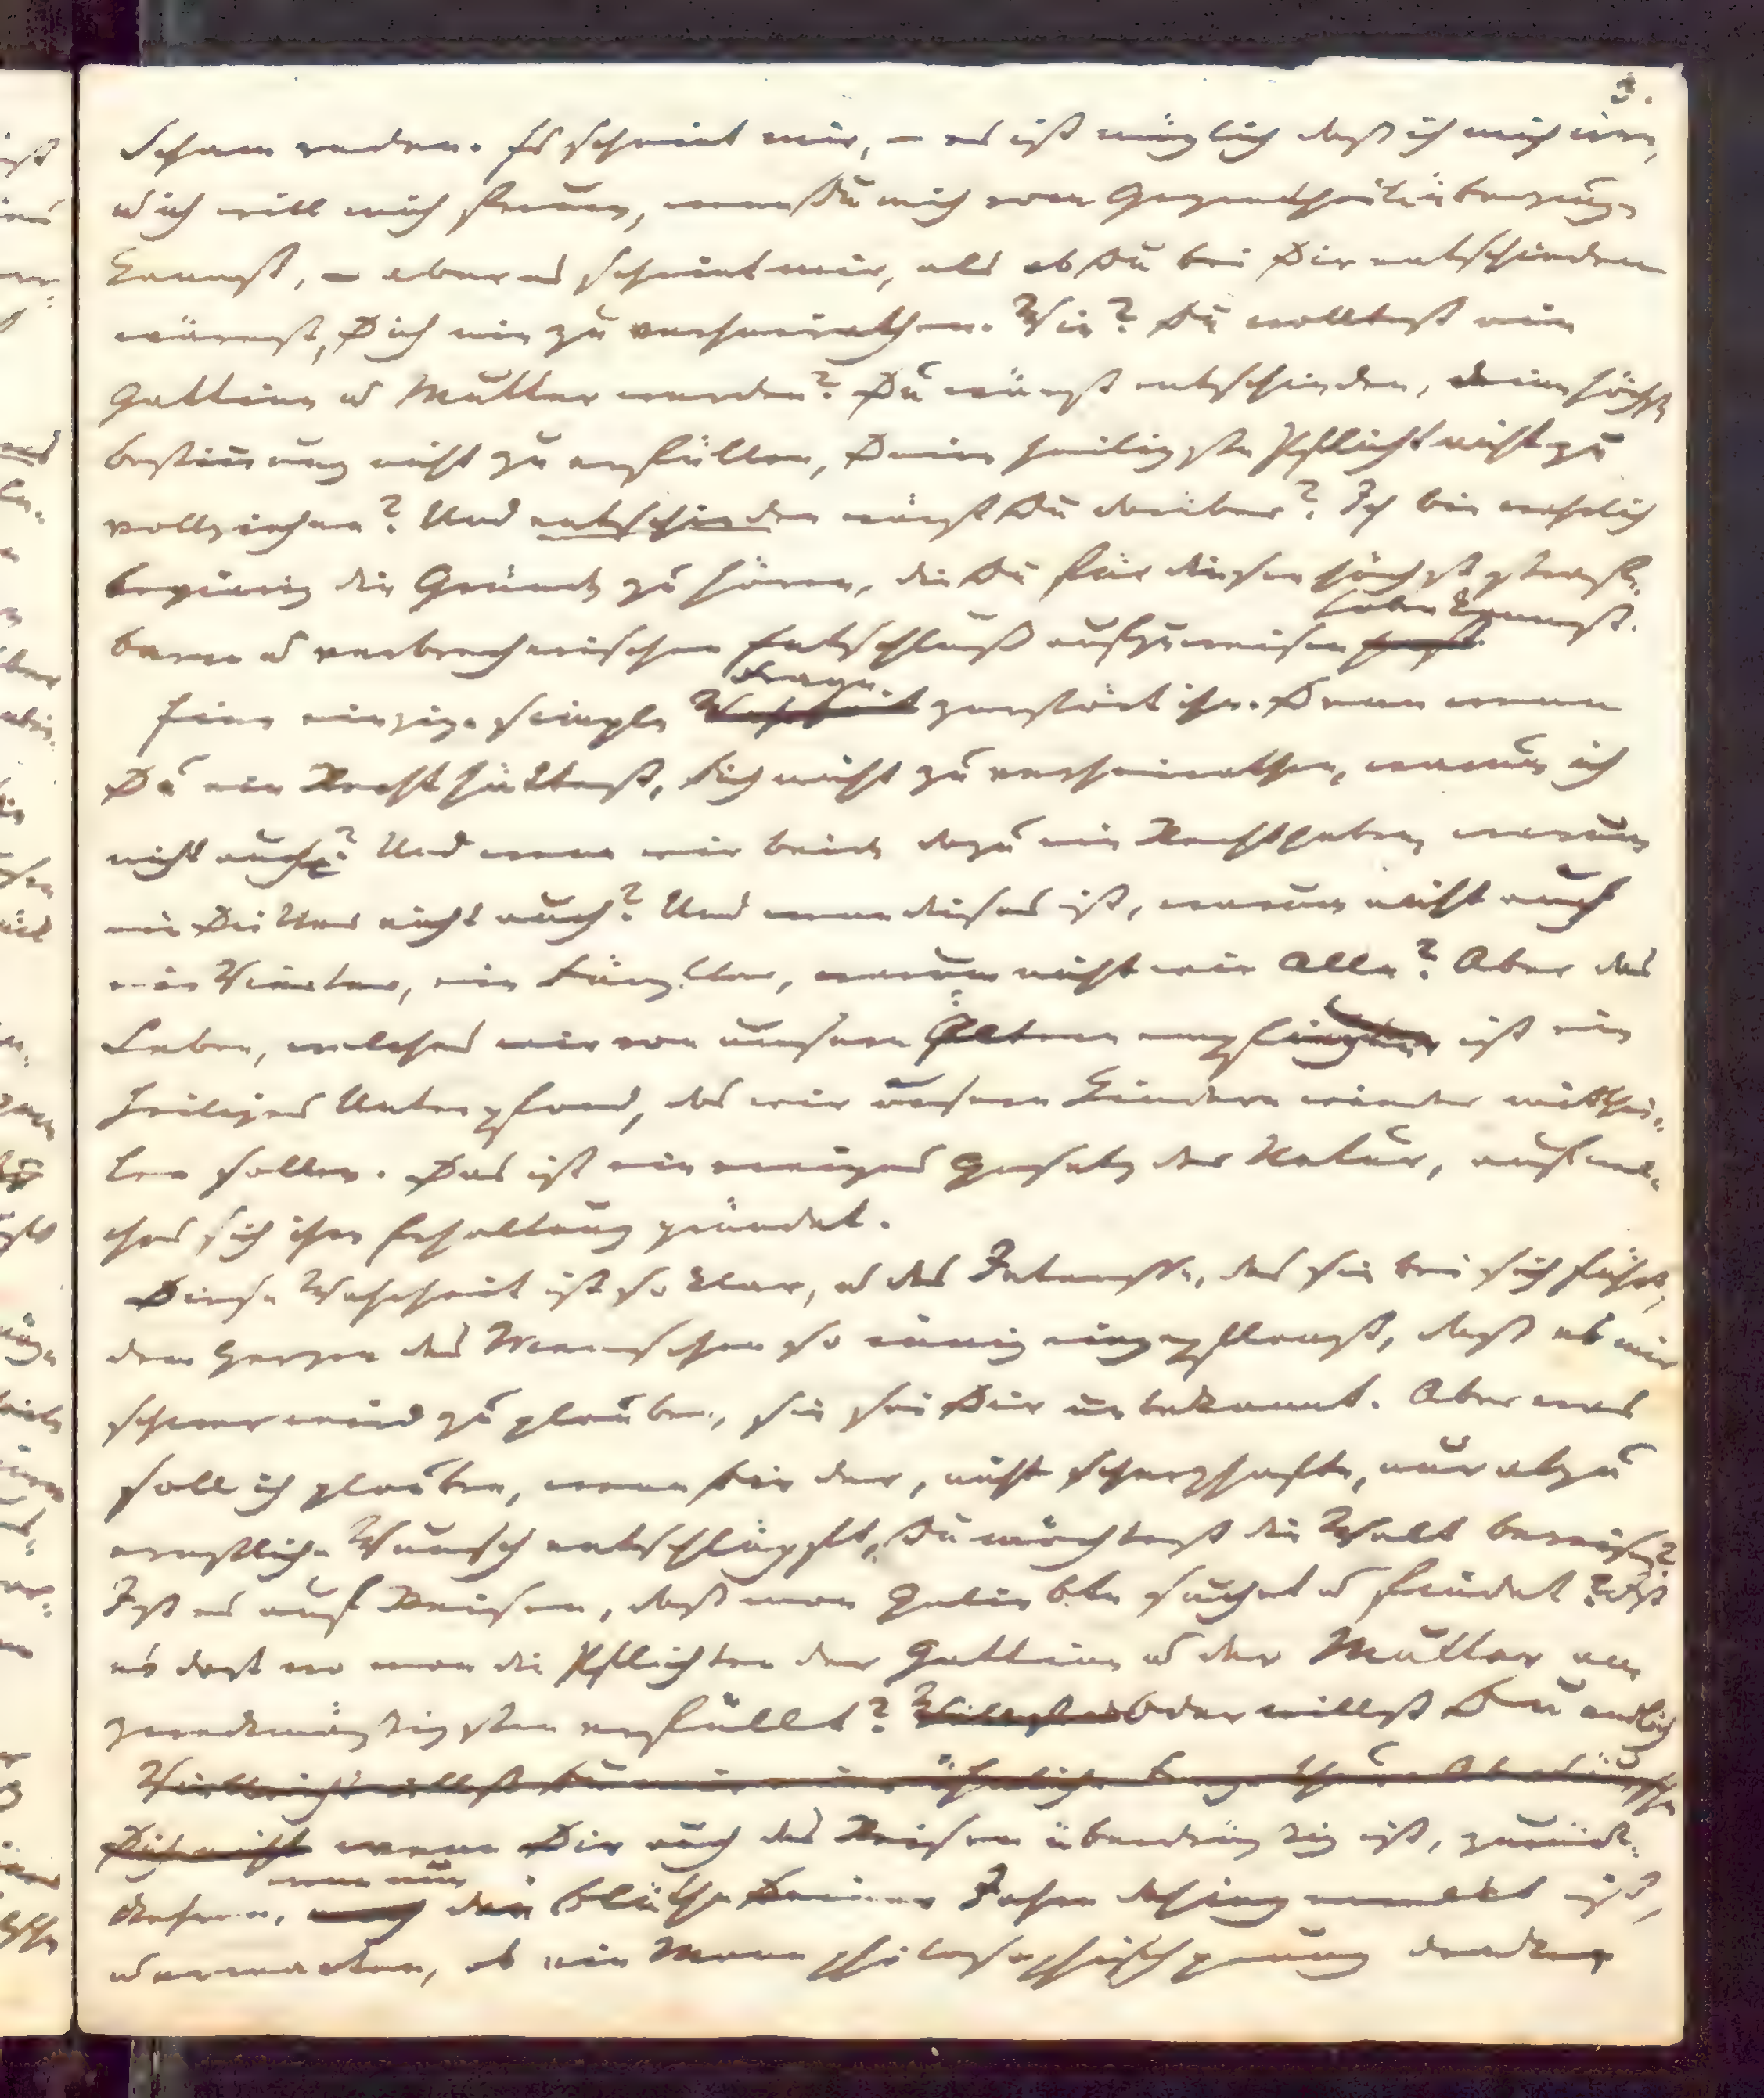 3.
Scham reden. Es scheint mir, – es ist möglich daß ich mich irre,
u ich will mich freuen, wenn Du mich vom Gegentheil überzeugen
kannst, – aber es scheint mir, als ob Du bei Dir entschieden
wärest, Dich nie zu verheirathen. Wie? Du wolltest nie
Gattinn u Mutter werden? Du wärst entschieden, deine höchste
Bestimmung nicht zu erfüllen, Deine heiligste Pflicht nicht zu
vollziehen? Und entschieden wärst Du darüber? Ich bin wahrlich
begierig die Gründe zu hören, die Du für diesen höchst straf-
baren u verbrecherischen Entschluß aufzuweisen haben kannst.
Eine einzige simple Frage zerstört ihn. Denn wenn
Du ein Recht hättest, Dich nicht zu verheirathen, warum ich
nicht auch? Und wenn wir beide dazu ein Recht haben, warum
ein Dritter nicht auch? Und wenn dieses ist, warum nicht auch
ein Vierter, ein Fünfter, warum nicht wir Alle? Aber das
Leben, welches wir von unsern Ältern empfingen ist ein
heiliges Unterpfand, das wir unsern Kindern wieder mitthei-
len sollen. Das ist ein ewiges Gesetz der Natur, auf wel-
ches sich ihre Erhaltung gründet.
Diese Wahrheit ist so klar, u das Interesse, das sie bei sich führt,
dem Herzen des Menschen so innig eingepflanzt, daß es mir
schwer wird zu glauben, sie sei Dir unbekannt. Aber was
soll ich glauben, wenn Dir der, nicht scherzhafte, nur alzu
ernstliche Wunsch entschlüpft, Du möchtest die Welt bereisen?
Ist es auf Reisen, daß man Geliebte suchet u findet? Ist
es dort wo man die Pflichten der Gattinn u der Mutter am
zweckmäßigsten erfüllt? Oder willst Du endlich
Vielleicht willst Du mir eine ähnliche Frage thun
Dich nicht wenn Dir auch das Reisen überdrüßig ist, zurück-
kehren, wenn nun die Blüthe Deiner Jahre dahingewelkt ist,
u erwarten, ob ein Mann philosophisch genug denke,